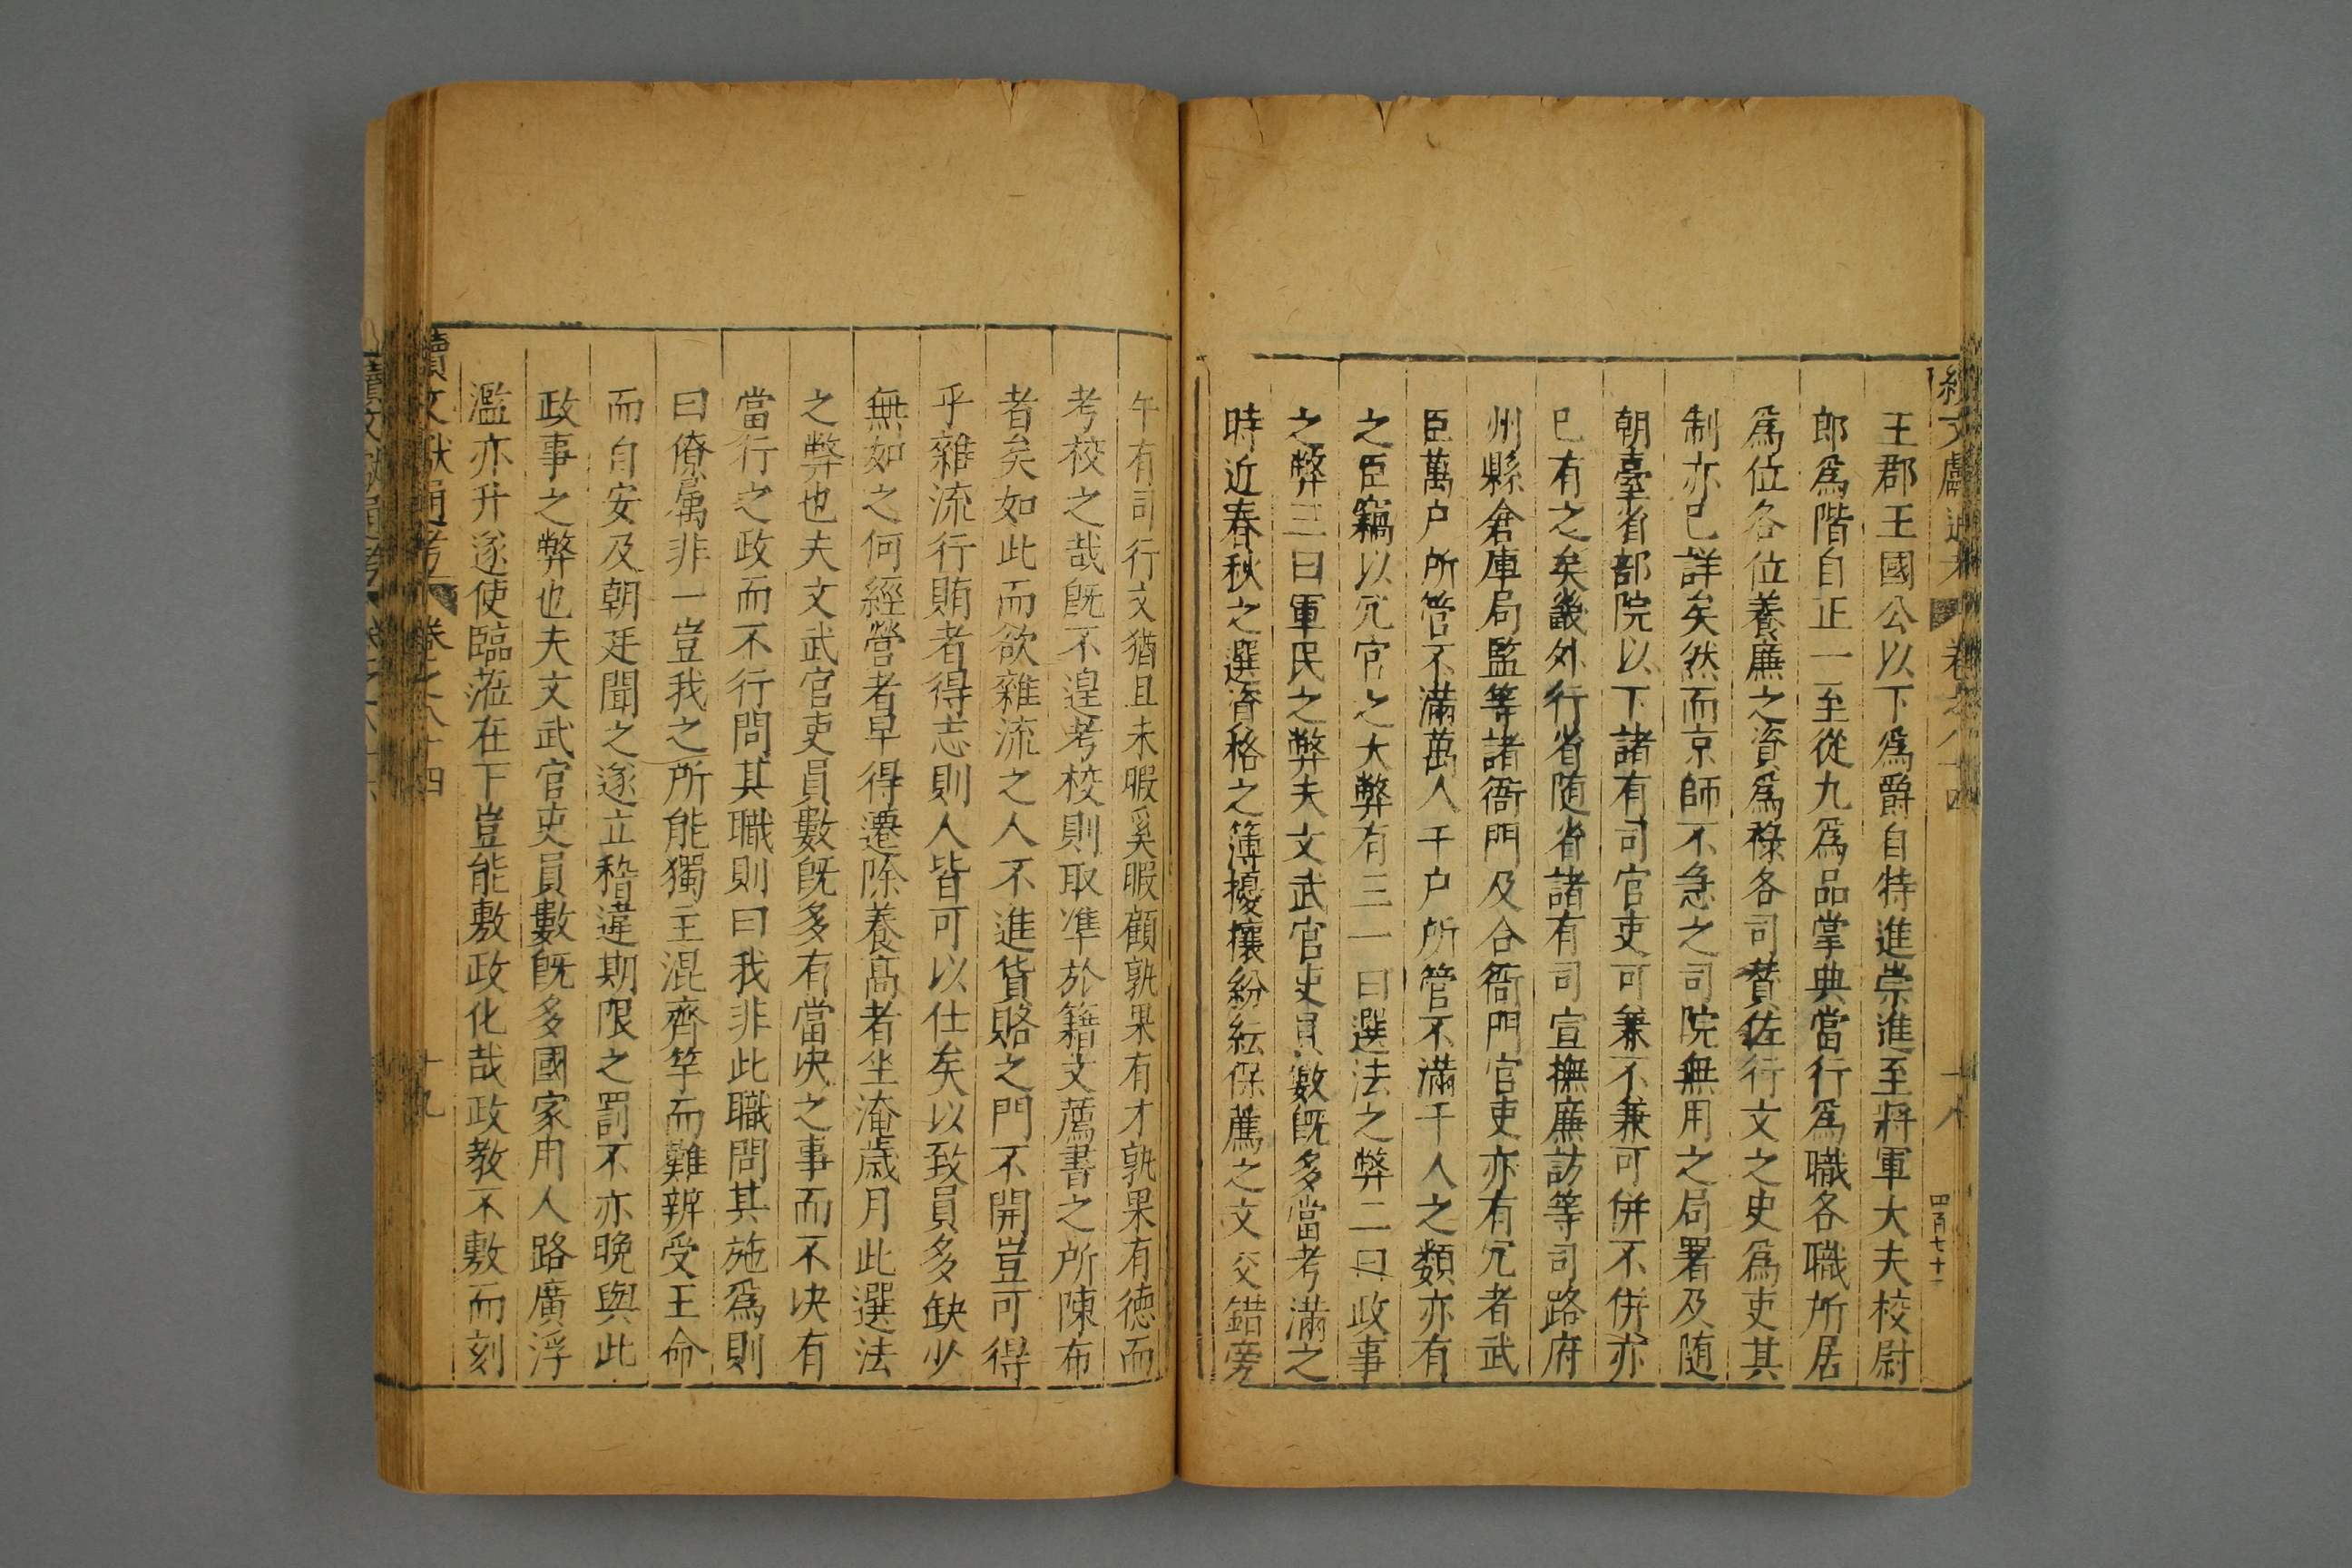 續文獻通考 卷之八十四 十八 四百七十一
王郡王國公以下爲爵自特進崇進至將軍大夫校尉
郎爲階自正一至從九爲品掌典當行爲職各職所居
爲位各位養廉之資爲祿各司贊佐行文之史爲吏其
制亦已詳矣然而京師不急之司院無用之局署及隨
朝臺省部院以下諸有司官吏可兼不兼可併不併亦
已有之矣畿外行省随省諸有司宣撫廉訪等司路府
州縣倉庫局監等諸衙門及合衙門官吏亦有冗者武
臣萬户所管不滿萬人千户所管不滿千人之類亦有
之臣竊以冗官之大弊有三一曰選法之弊二曰政事
之弊三曰軍民之弊夫文武官吏員數旣多當考滿之
時近春秋之選資格之簿擾攘紛紜保薦之文交錯旁
午有司行文猶且未暇奚暇顧孰果有才孰果有德而
考校之哉旣不遑考校則取準於籍文薦書之所陳布
者矣如此而欲雜流之人不進貨賂之門不開豈可得
乎雜流行賄者得志則人皆可以仕矣以致員多缺少
無如之何經營者早得遷除養高者坐淹歲月此選法
之弊也夫文武官吏員數旣多有當决之事而不决有
當行之政而不行問其職則曰我非此職問其施爲則
曰僚属非一豈我之所能獨主混齊竽而難辨受王命
而自安及朝廷聞之遂立稽違期限之罰不亦晚與此
政事之弊也夫文武官吏員數旣多國家用人路廣浮
濫亦升遂使臨蒞在下豈能敷政化哉政教不敷而刻
續文獻通考 卷之八十四 十九